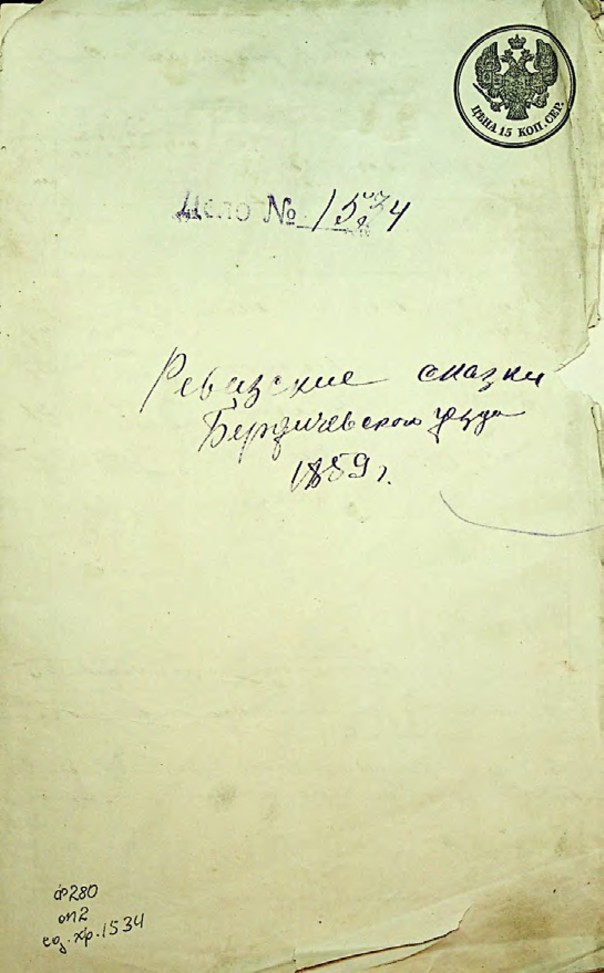 ЦѢНА 15 КОП. СЕР.
Дело № 1534
Ревизские сказки
Бердичевского уезда
1859 г.
ф280
оп2
ед. хр. 1534